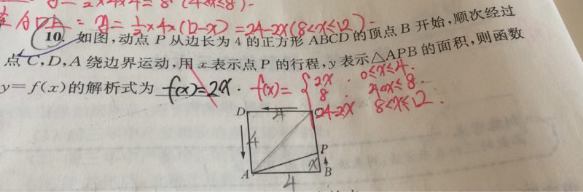 y = ½×4×4 = 8 (4≤x≤8).
= y = ½×4×(12-x) = 24-2x (8<x≤12).
10. 如图,动点 P 从边长为 4 的正方形 ABCD 的顶点 B 开始,顺次经过
点 C,D,A 绕边界运动,用 x 表示点 P 的行程,y 表示△APB 的面积,则函数
y=f(x)的解析式为 f(x)=2x. f(x)= { 2x, 0≤x≤4.
8, 4<x≤8.
24-2x 8<x≤12.
D
4
4
P
x
A
4
B